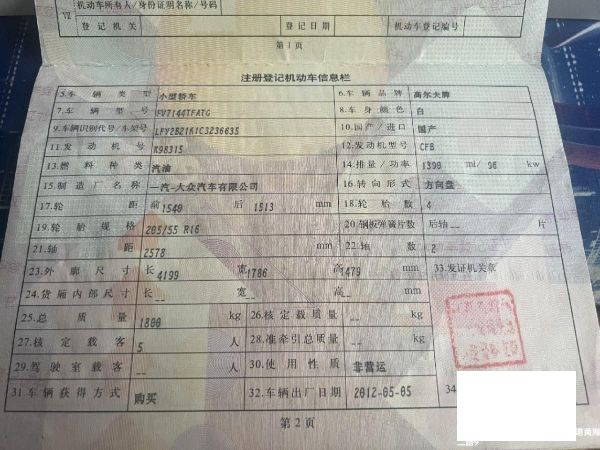 机动车所有人/身份证明名称/号码
Ⅶ
登记机关 登记日期 机动车登记编号
第1页
注册登记机动车信息栏
5.车辆类型 小型轿车 6.车辆品牌 高尔夫牌
7.车辆型号 FV7144TFATG 8.车身颜色 白
9.车辆识别代号/车架号 LFV2B21K1C3236635 10.国产/进口 国产
11.发动机号 K98315 12.发动机型号 CFB
13.燃料种类 汽油 14.排量/功率 1390 ml/ 96 kw
15.制造厂名称 一汽-大众汽车有限公司 16.转向形式 方向盘
17.轮距 前 1540 后 1513 mm 18.轮胎数 4
19.轮胎规格 205/55 R16 20.钢板弹簧片数 后轴-- 片
21.轴距 2578 mm 22.轴数 2
23.外廓尺寸 长 4199 宽 1786 高 1479 mm 33.发证机关章
24.货厢内部尺寸 长-- 宽-- 高-- mm
25.总质量 1800 kg 26.核定载质量 -- kg
27.核定载客 5 人 28.准牵引总质量 -- kg
29.驾驶室载客 -- 人 30.使用性质 非营运
31.车辆获得方式 购买 32.车辆出厂日期 2012-05-05 34
第2页